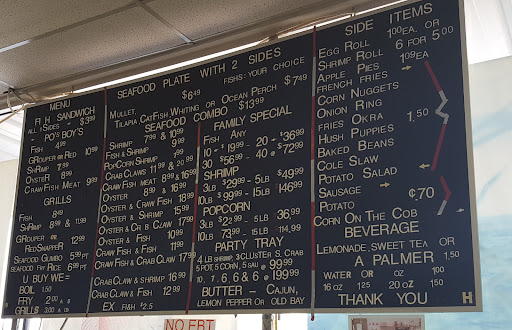 MENU
FISH SANDWICH
ALL 1 SIDES - $3.99
- PO'S BOY'S
FISH 4.99
GROUPER OR RED 10.99
SHRIMP 7.99
OYSTER 8.99
CRAW FISH MEAT 9.99
GRILLS
FISH 8.49
SHRIMP 8.99 & 11.99
GROUPER OR 12.99
RED SNAPPER
SEAFOOD GUMBO 5.99 PT
SEAFOOD FRY RICE 6.99 PT
U BUY WE =
BOIL 1.50
FRY 2.00 A
GRILLS 3.00 &
SEAFOOD PLATE WITH 2 SIDES
$6.49 FISHS: YOUR CHOICE
MULLET, $7.49
TILAPIA CATFISH, WHITING OR OCEAN PERCH
SEAFOOD COMBO $13.99
SHRIMP 7.99 & 10.99
FISH & SHRIMP 9.99
POPCORN SHRIMP 7.99
CRAB CLAWS 11.99 & 20.99
CRAW FISH MEAT 8.99 & 16.99
OYSTER 8.99 & 16.99
OYSTER & SHRIMP 15.99
OYSTER & CRAB CLAW 17.99
OYSTER & FISH 10.99
CRAW FISH & FISH 11.99
CRAW FISH & CRAB CLAW 17.99
CRAB CLAW & SHRIMP 16.99
CRAB CLAW & FISH 12.99
EX FISH $2.5
FAMILY SPECIAL
FISH ANY
10 - $19.99 - 20 - $36.99
30 $56.99 - 40 $72.99
SHRIMP
3LB $29.99 - 5LB $49.99
10LB $99.99 - 15LB $146.99
POPCORN
3LB $22.99 - 5LB 36.99
10LB 73.99 - 15LB 114.99
PARTY TRAY
4LB SHRIMP, 3 CLUSTER S. CRAB
5 POT, 5 CORN, 5 SAU = 99.99
10, 7, 6, 6 & 6 = $199.99
BUTTER - CAJUN,
LEMON PEPPER OR OLD BAY
SIDE ITEMS
EGG ROLL 1.00 EA. OR
SHRIMP ROLL 6 FOR 5.00
APPLE PIES 1.09 EA
FRENCH FRIES
CORN NUGGETS
ONION RING
FRIES OKRA 1.50
HUSH PUPPIES
BAKED BEANS
COLE SLAW
POTATO SALAD
SAUSAGE
POTATO ¢.70
CORN ON THE COB
BEVERAGE
LEMONADE, SWEET TEA OR
A PALMER 1.50
WATER OR OZ 1.00
16 OZ 1.25 20 OZ 1.50
THANK YOU H
NO EBT